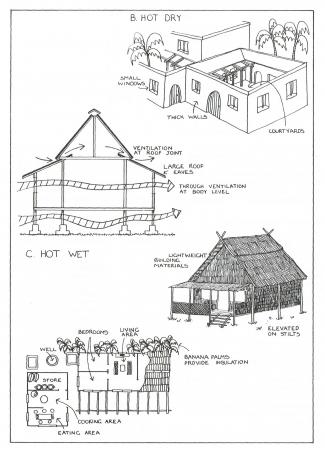 B. HOT DRY
SMALL
WINDOWS
THICK WALLS
COURTYARDS
VENTILATION
AT ROOF JOINT
LARGE ROOF
EAVES
THROUGH VENTILATION
AT BODY LEVEL
C. HOT WET
LIGHTWEIGHT
BUILDING
MATERIALS
ELEVATED
ON STILTS
BEDROOMS
LIVING
AREA
WELL
BANANA PALMS
PROVIDE INSULATION
STORE
COOKING AREA
EATING AREA